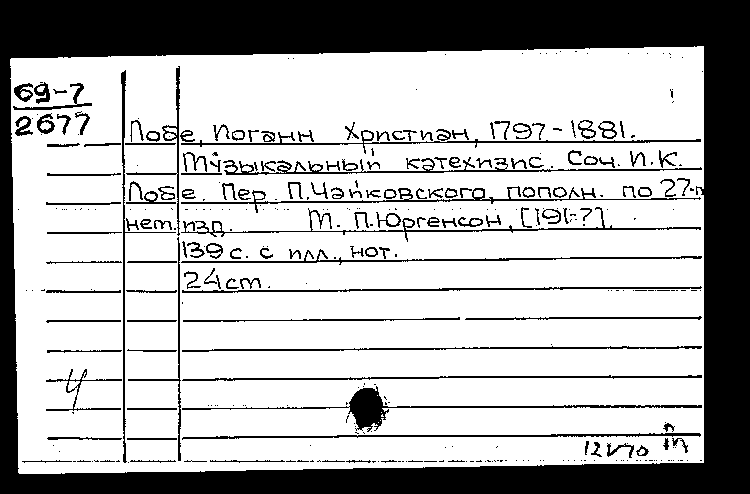 69-7
2677
Лобе, Иоганн Христиан, 1797-1881.
Музыкальный катехизис. Соч. И.К.
Лобе. Пер. П.Чайковского, пополн. по 27-му
нем. изд. М., П.Юргенсон, [191-?].
139 с. с илл., нот.
24 cm.
Ч
12 V 70